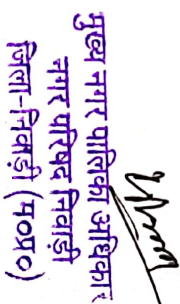 मुख्य नगर पालिका अधिकार
नगर परिषद निवाड़ी
जिला-निवाड़ी (म०प्र०)